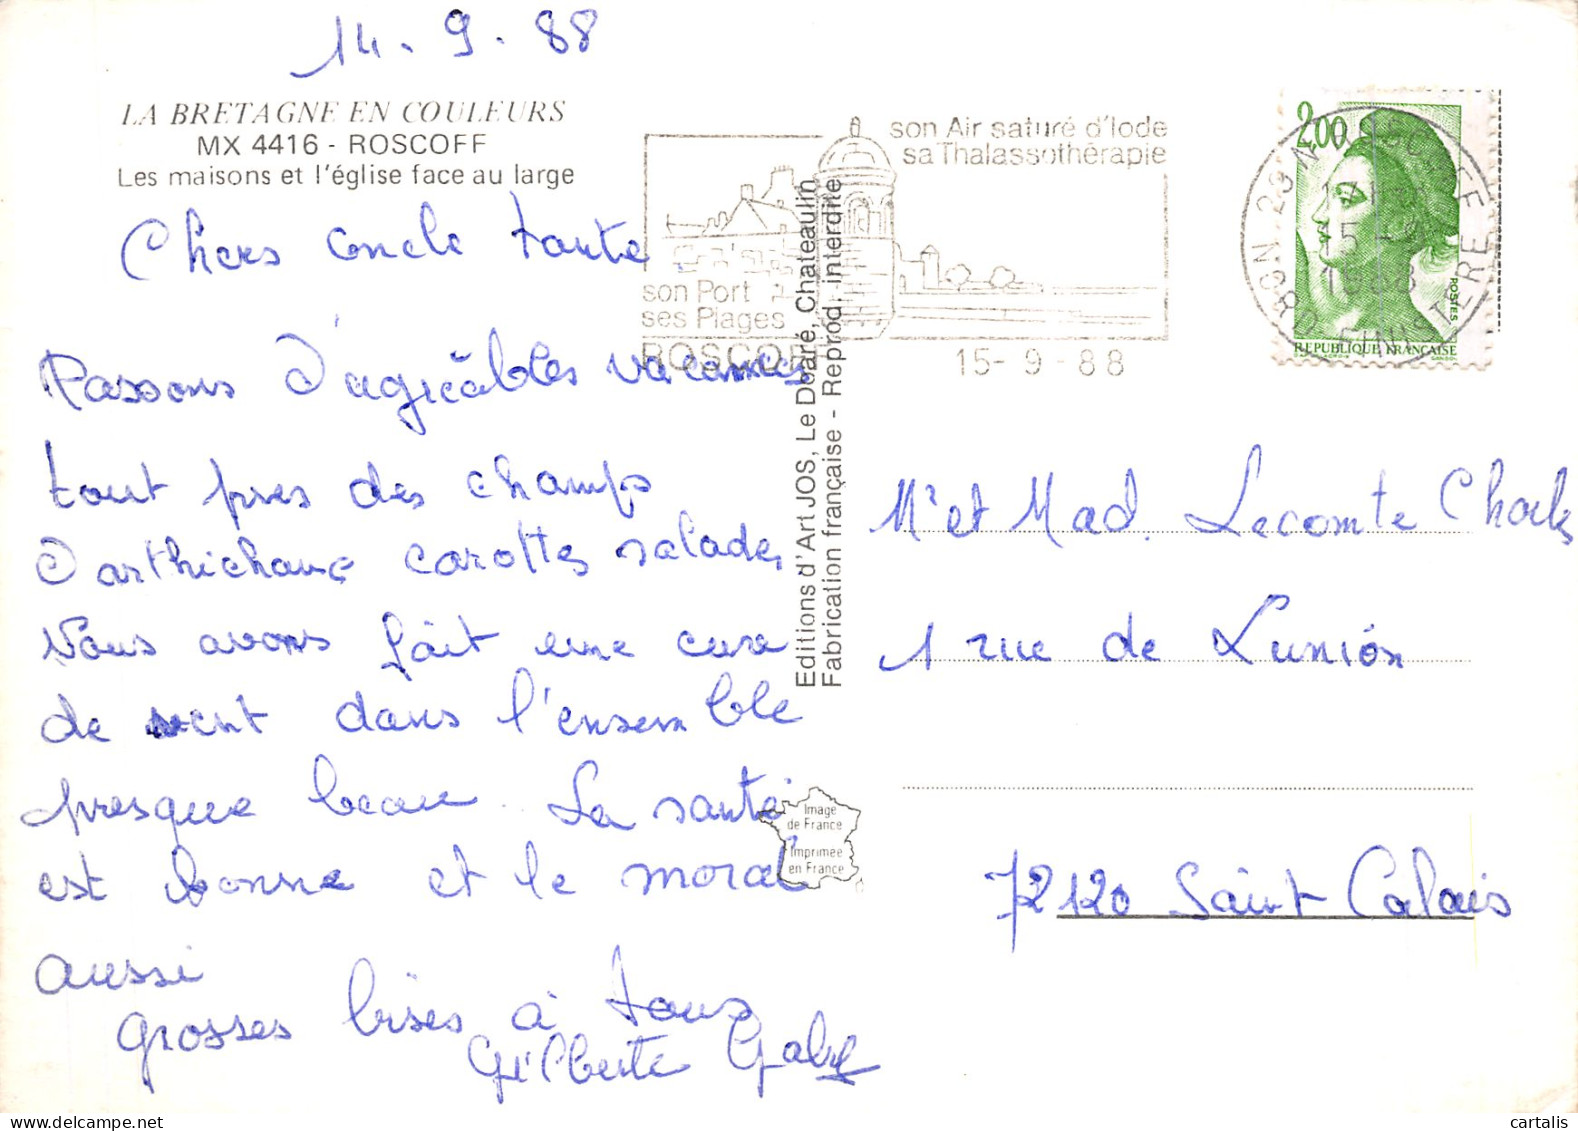 14 - 9 - 88
LA BRETAGNE EN COULEURS
MX 4416 - ROSCOFF
Les maisons et l'église face au large
Chers oncle tante
Passons d'agréables vacances
tout pres des champs
d'arthichaux carottes salades
Nous avons fait une cure
de vent dans l'ensemble
presque beau. La santé
est bonne et le moral
aussi
grosses bises à tous
Gilberte Gaby
son Air saturé d'Iode
sa Thalassothérapie
son Port
ses Plages
ROSCOFF
15 - 9 - 88
Editions d'Art JOS, Le Doaré, Chateaulin
Fabrication française - Reprod. interdite
Image
de France
Imprimée
en France
2,00
POSTES
REPUBLIQUE FRANÇAISE
ROSCOFF
15 - 9
1988
FINISTERE
Mr et Mad. Lecomte Charles
1 rue de Lunión
72120 Saint Calais
cartalis